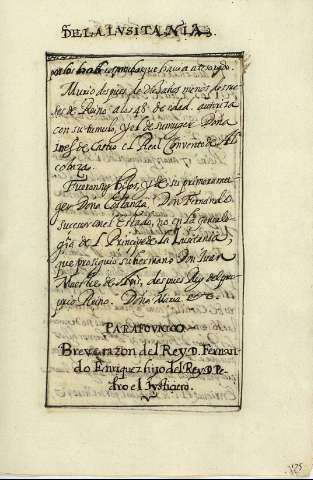 DE LA LVSITANIA.
por los que hauia atesorado
Murio despues de diez años menos de me-
ses de Reino a los 48 de edad, autoriza
con su tumulo, y el de su muger Doña
Ines de Castro el Real Convento de Al
cobaza.
Fueron sus hijos, y de su primera mu-
ger Doña Costanza, Don Fernando
sucesor en el Estado, no en la genealo-
gia de l Principe de la Lusitania,
que prosiguio su hermano Don Iuan
Maestre de Avis, despues Rey del pro-
prio Reino. Doña Maria etc.
PARAFO VNICO
Breve razon del Rey D. Fernan-
do Enriquez hijo del Rey D. Pe-
dro el Iusticiero.
125